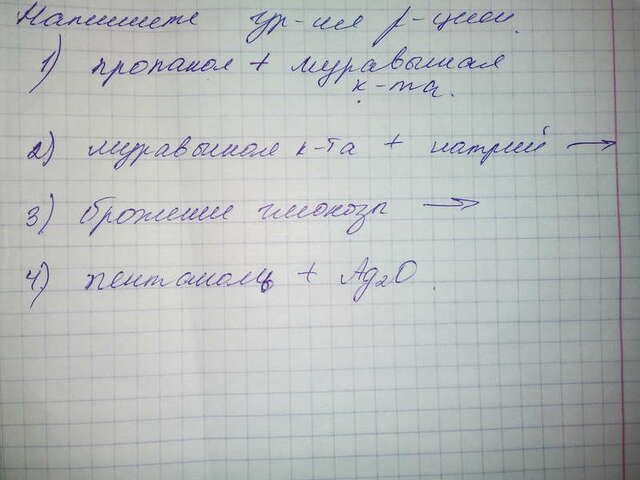 Напишите ур-ия р-ции.
1) пропанол + муравьиная
к-та.
2) муравьиная к-та + натрий →
3) брожение глюкозы →
4) пентаналь + Ag₂O.